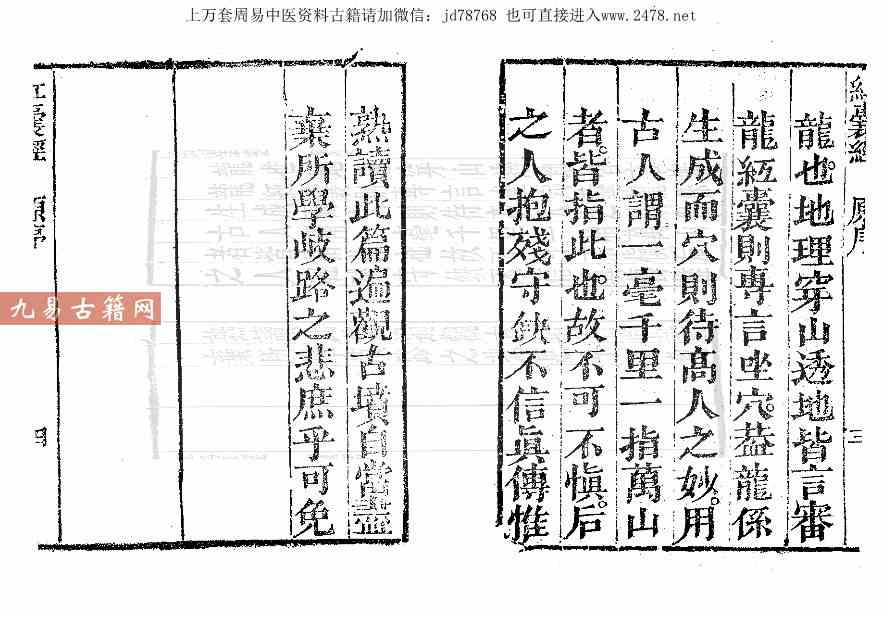 上万套周易中医资料古籍请加微信：jd78768 也可直接进入www.2478.net
紅囊經 原序 三
龍也。地理穿山透地皆言審
龍紅囊則專言坐穴。葢龍係
生成而穴則待高人之妙。用
古人謂一毫千里一指萬山
者。皆指此也。故不可不愼。后
之人抱殘守缺不信眞傳惟
熟讀此篇遍觀古墳自當盡
棄所學歧路之悲庶乎可免
紅囊經 原序 四
九易古籍网